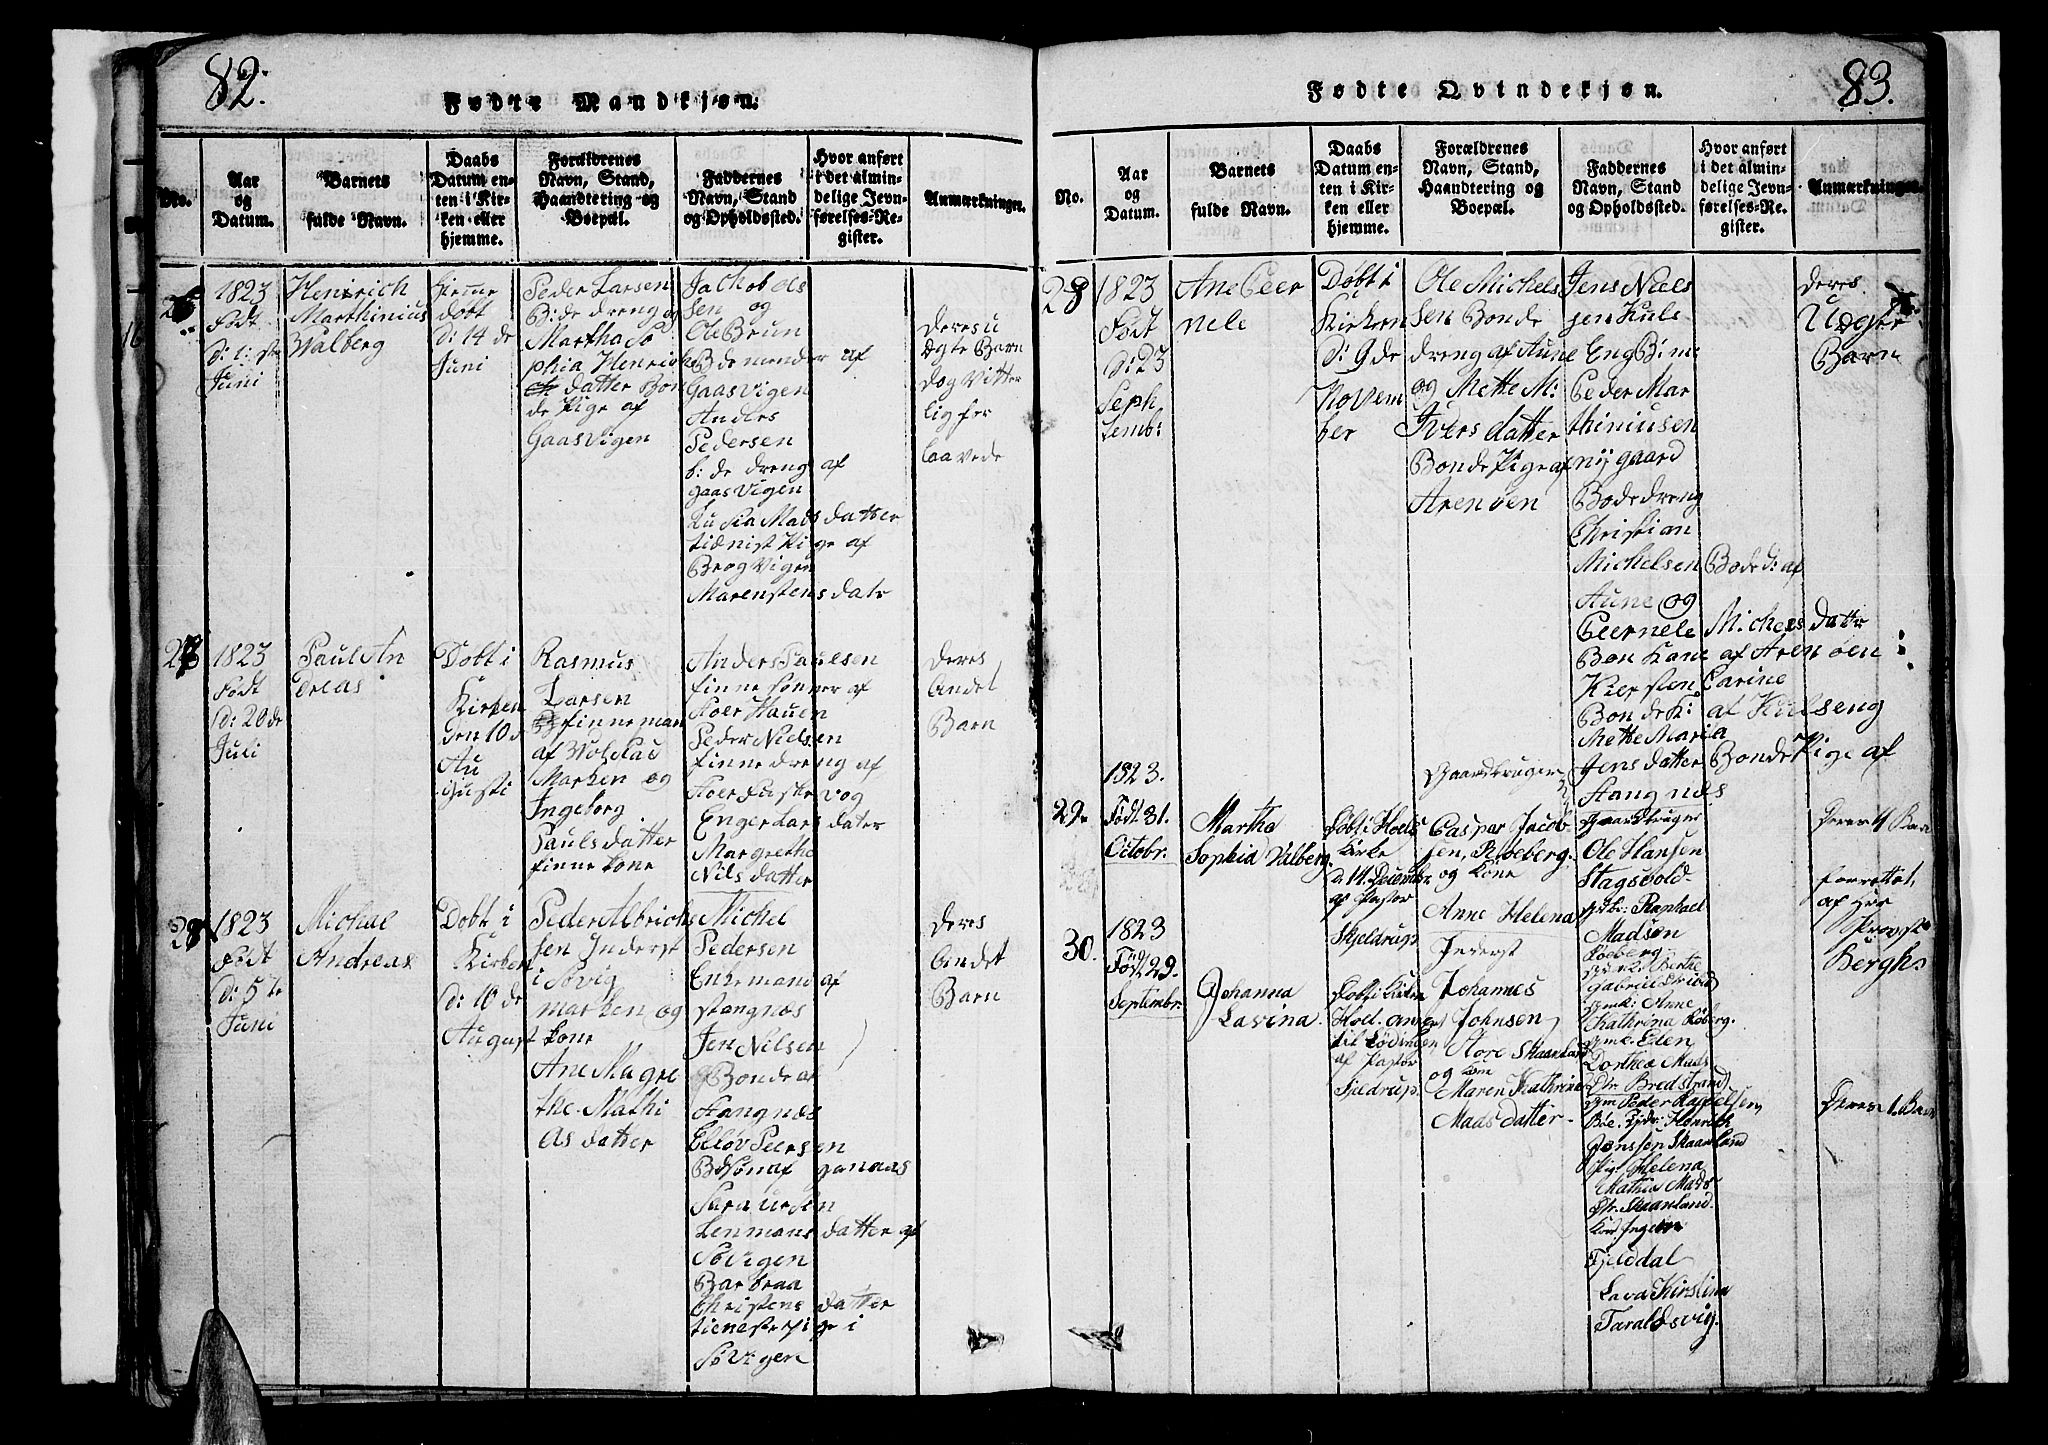 82.
Fødte Mandkjøn.
No.
Aar
og
Datum.
Barnets
fulde Navn.
Daabs
Datum en-
ten i Kir-
ken eller
hjemme.
Forældrenes
Navn, Stand,
Haandtering og
Boepæl.
Faddernes
Navn, Stand
og Opholdssted.
Hvor anført
i det almin-
delige Jevn-
førelses-Re-
gister.
Anmærkninger.
1823
Født
Di: 1: ste
Juni
Henrich
Marthinius
Walberg
Hiemme
døbt
Di 14 de
Juni
Peder Larsen
B: de dreng og
Martha So
phia Henrich
datter Bon
de Pige af
Gaasvigen
Jachob Ols
sen og
Ole Brun
Bdemender af
Gaasvigen
Anders
Pedersen
b: de dreng af
gaasvigen
Lusia Mads datter
tienist Pige af
Brogvigen
Maren stens datr
deres u
Ægte Barn
dog Vitter
lig for
laavede
1823
Født
Di: 20 de
Juli
Paul An
dreas
Døbt i
Kirken
den 10 d
Au
gusti
Rasmus
Larsen
finne man
af Wolstad
Marken og
Ingeborg
Pauls datter
finne kone
Anders Paulsen
finne sønner af
Hoer Hauen
Peder Nielsen
finne dreng af
og
Enger Lars dater
Margrethe
Nils datter
deres
Andet
Barn
28
1823
Født
Di: 5 te
Juni
Michal
Andreas
Døbt i
Kirken
di: 10 de
August
Peder Albrichs
sen Inderst
i Søvig
marken og
kone
Ane Magre
the Mathi
as datter
Michel
Pedersen
Enkemand af
stangnæs
Jen Nilsen
Bonde af
Hangnæs
Elløv Peersen
B: Søn af ganaas
Sara ursin
Lenmans datter af
Søvigen
Barbraa
Christens datter
tieneste pige i
Søvigen
deres
Andet
Barn
83.
Fødte Qvindekjøn.
No.
Aar
og
Datum.
Barnets
fulde Navn.
Daabs
Datum en-
ten i Kir-
ken eller
hjemme.
Forældrenes
Navn, Stand,
Haandtering og
Boepæl.
Faddernes
Navn, Stand
og Opholdssted.
Hvor anført
i det almin-
delige Jevn-
førelses-Re-
gister.
Anmærkninger.
28
1823
Født
Di: 23
Seph
temb:
Ane Peer
nele
Døbt i
Kirken
Di 9 de
Novem
ber
Ole Michels
sen Bonde
dreng af Aune
og Mette M:
Ivers datter
Bonde Pige af
Arenøen
Jens Niels
sen Kuls
Eng B: m:
Peder Mar
thiniusen
nygaard
Bode dreng
Christian
Michelsen Bode d: af
Aune og
Peernele Michels datr
Bon Kane af Arenøen
Kiersten Carine
Bonde K: af Kulseng
Mette Maria
Jens datter Bonde Pige af
Hangnæs
deres
Uægte
Barn
29.
1823.
Født 31.
Octobr.
Martha
Sophia Valberg.
Døbt i Hoels
Kirke
d: 14 Decembr
af Pastor
Skjeldrups
Gaardbruger
Caspar Jacob
sen, Røeberg.
og Kone
Anne Helena
Gaardbruger
Ole Hansen
Stagsvold
Raphael
Madsøn
Roeberg
Berthe
Gabriel
Anne
Kathrina Røberg.
Eden
Dorthea Mads
Dtr. Bredstrand
Deres 4 Barn
forrettet,
af Hr.
Provst
Berghs
30.
1823
Født 29.
Septembr.
Johanna
Lavina.
Døbt i Kirken
Hoel. annex
til Lødingen
af Pastor
Sjeldrup.
Inderst
Johannes
Johnsen
Store Skaanland
og Kone
Maren Kathrine
Mads datter
Peder
Henrich
Jenssen Skaanland
Pig: Helena
Mathea Mads
Dtr. Skaanland
Fjelddal
Lava Kirstina
Taraldsvig.
Deres 1. Barn